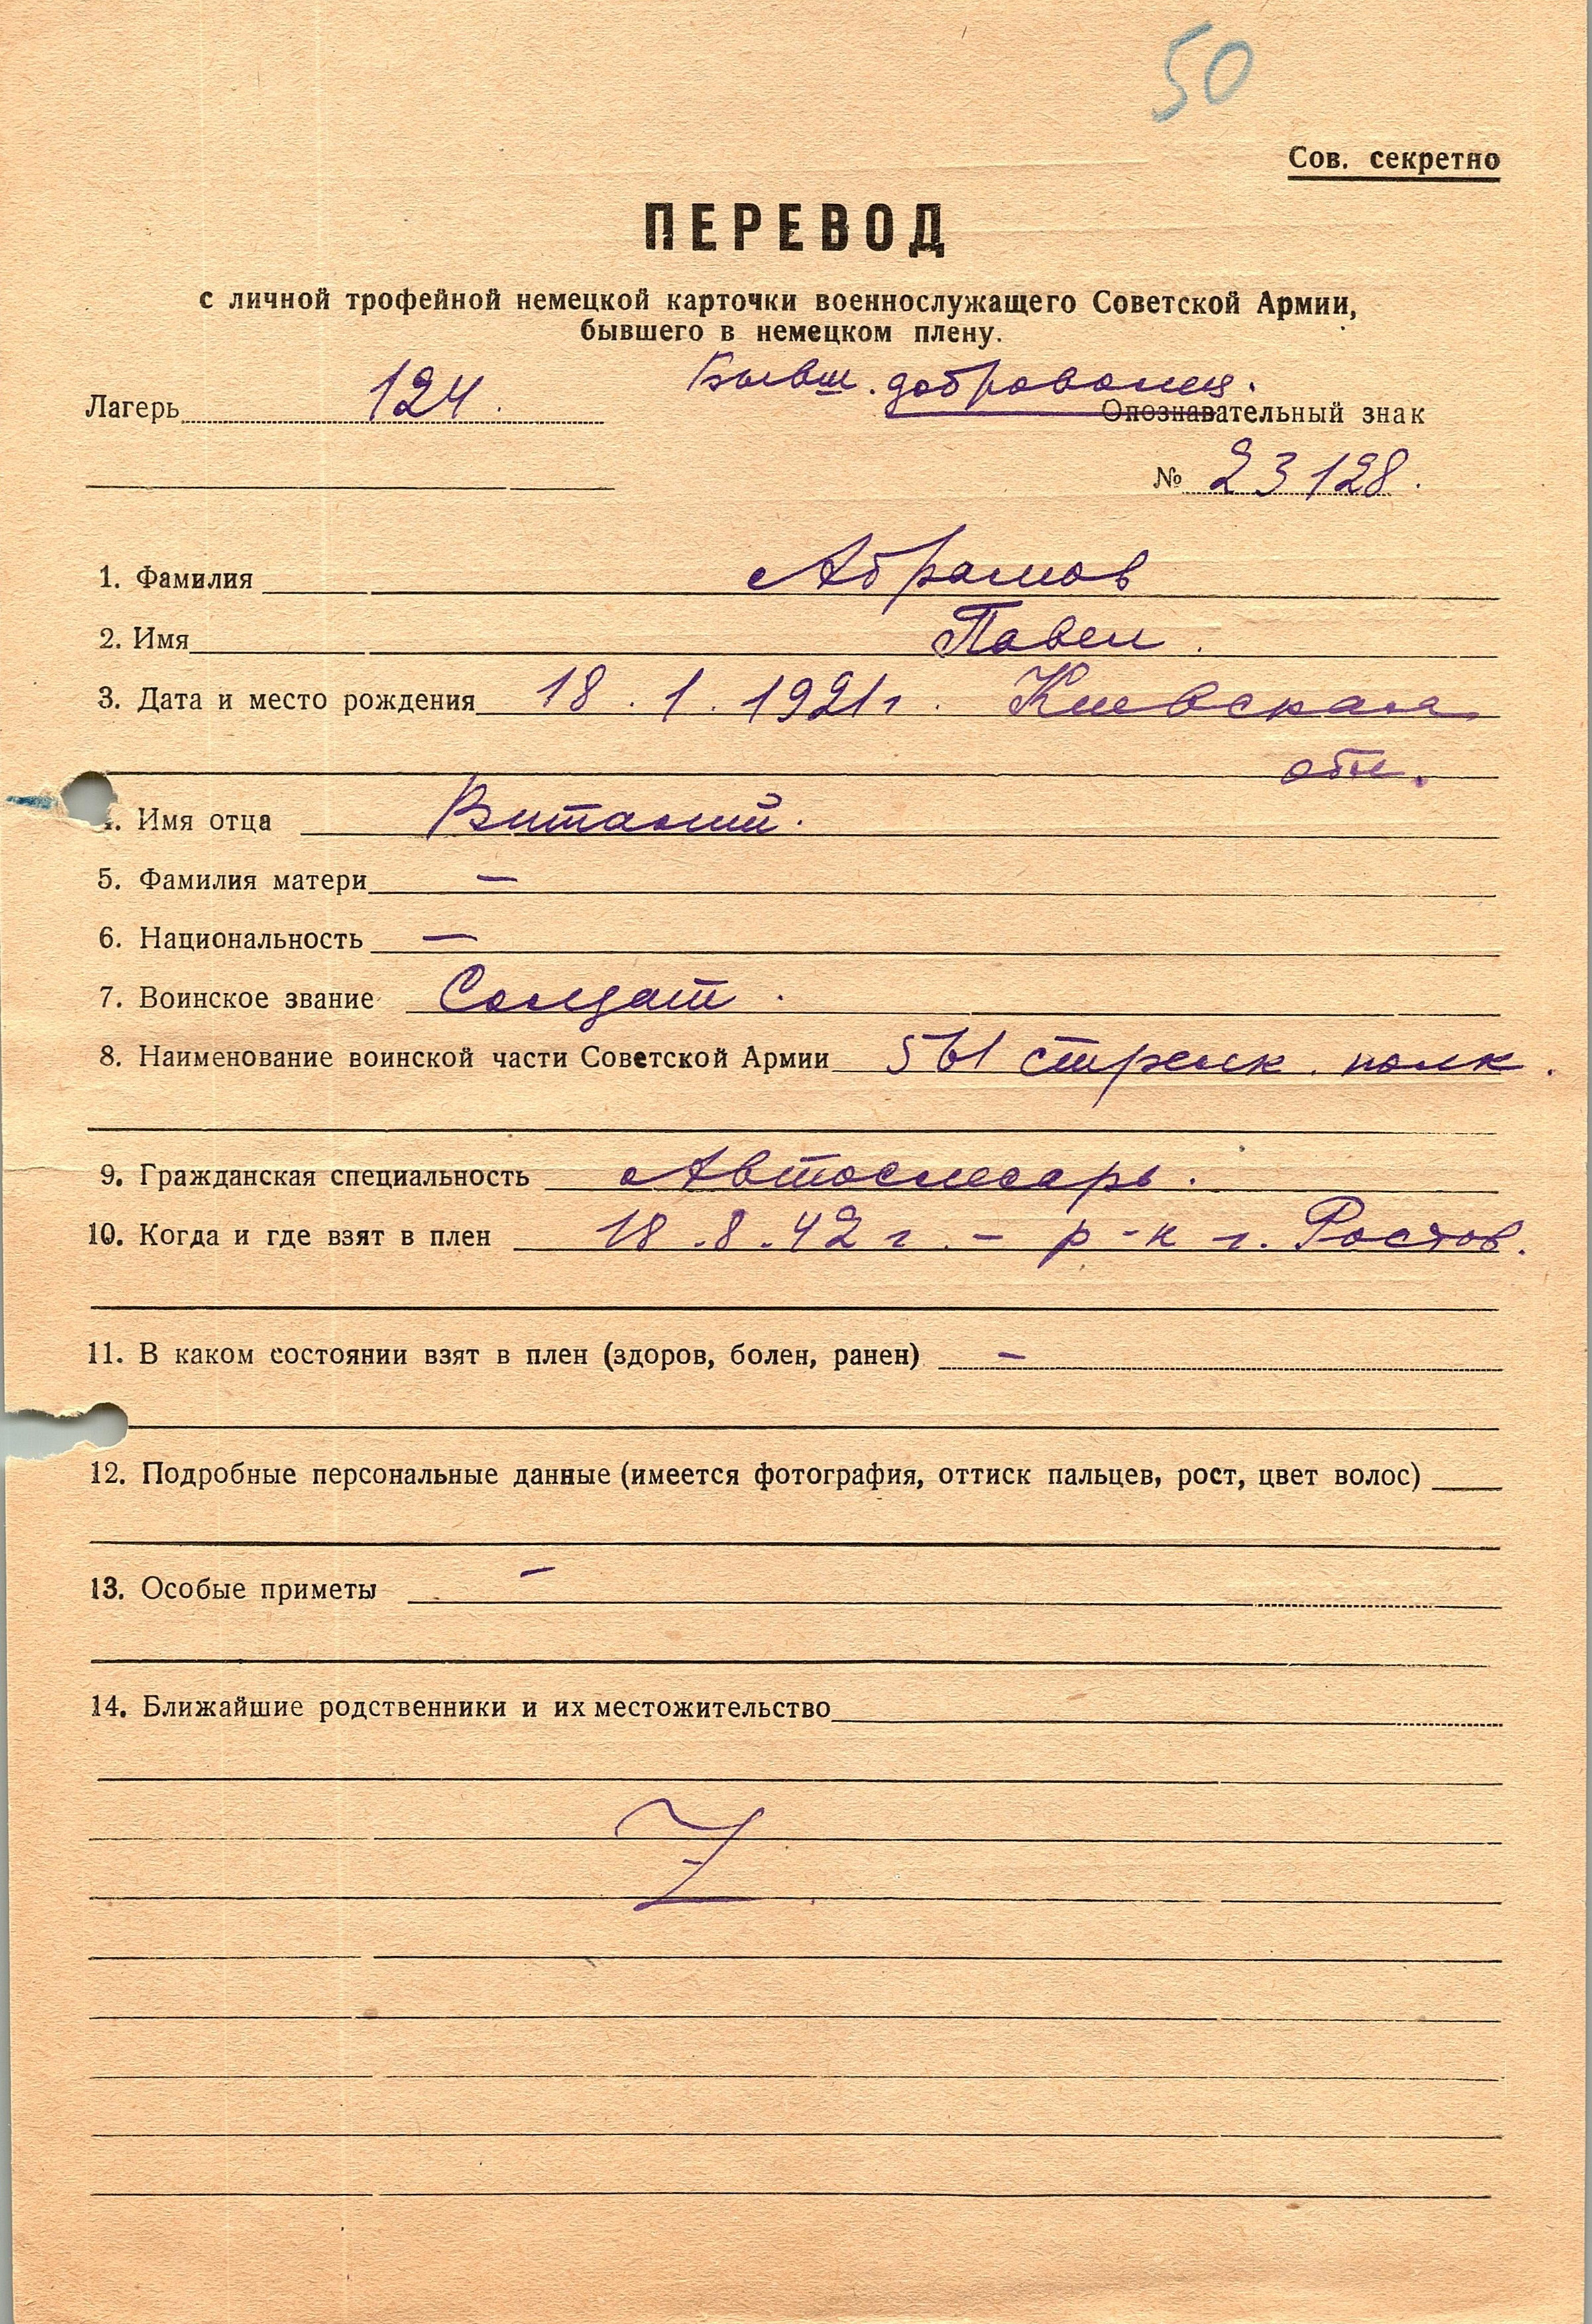 50
Сов. секретно
ПЕРЕВОД
с личной трофейной немецкой карточки военнослужащего Советской Армии,
бывшего в немецком плену.
Бывш. доброволец.
Лагерь 124. Опознавательный знак
№ 23128.
1. Фамилия Абрамов
2. Имя Павел.
3. Дата и место рождения 18.1.1921г. Киевская
обл.
4. Имя отца Виталий.
5. Фамилия матери —
6. Национальность —
7. Воинское звание Солдат.
8. Наименование воинской части Советской Армии 561 стрелк. полк.
9. Гражданская специальность Автослесарь.
10. Когда и где взят в плен 18.8.42 г. - р-н г. Ростов.
11. В каком состоянии взят в плен (здоров, болен, ранен) —
12. Подробные персональные данные (имеется фотография, оттиск пальцев, рост, цвет волос)
13. Особые приметы —
14. Ближайшие родственники и их местожительство
Z